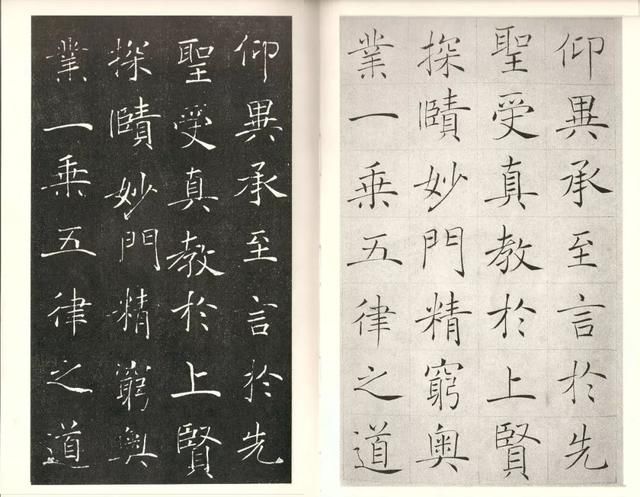 仰異承至言於先
聖受真教於上賢
探賾妙門精窮奧
業一乘五律之道
仰異承至言於先
聖受真教於上賢
探賾妙門精窮奧
業一乘五律之道